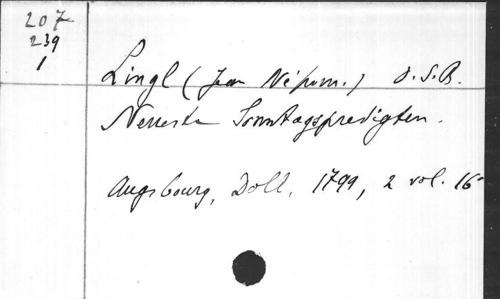 207
239
1
Lingl (Jean Népom.) O.S.B.
Neueste Sonntagspredigten.
Augsbourg, Doll, 1799, 2 vol. 16°